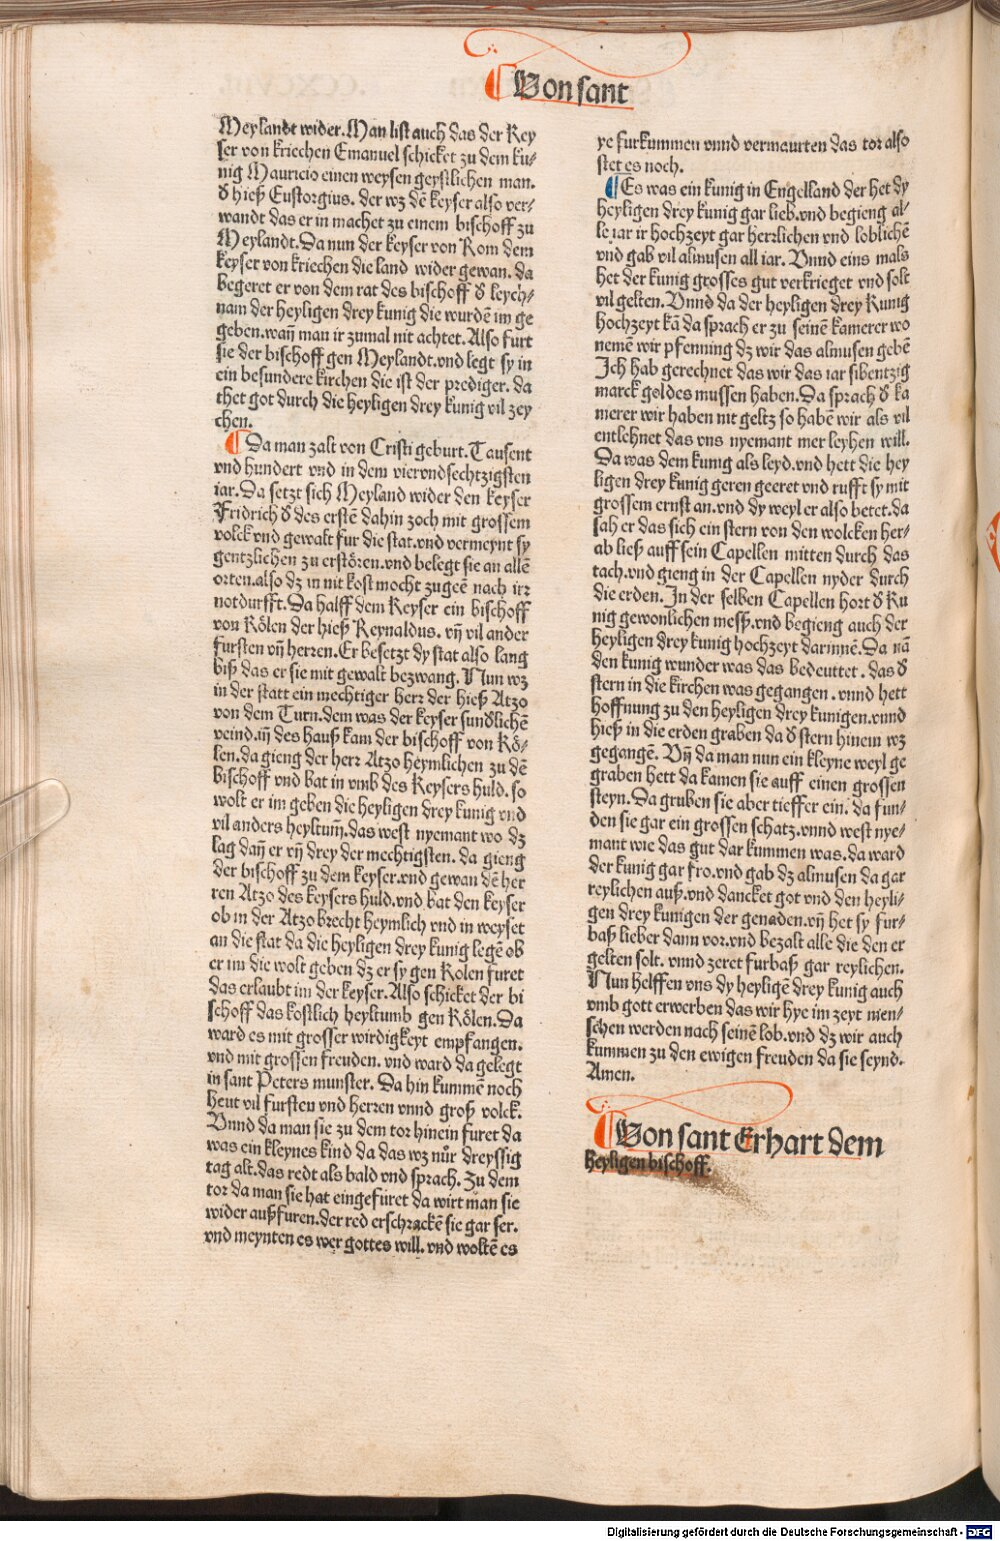 Von sant
Meylandt wider. Man list auch das der Key
ser von kriechen Emanuel schicket zu dem ku-
nig Mauricio einen weysen geystlichen man.
ð hieß Eustorgius. der wz dē keyser also ver-
wandt das er in machet zu einem bischoff zu
Meylandt. Da nun der keyser von Rom dem
keyser von kriechen die land wider gewan. da
begeret er von dem rat des bischoff ð leych-
nam der heyligen drey kunig die wurdē im ge
geben. wañ man ir zumal nit achtet. Also furt
sie der bischoff gen Meylandt. vnd legt sy in
ein besundere kirchen die ist der prediger. da
thet got durch die heyligen drey kunig vil zey
chen.
Da man zalt von Cristi geburt. Tausent
vnd hundert vnd in dem viervndsechtzigsten
iar. Da setzt sich Meyland wider den keyser
Fridrich ð des erstē dahin zoch mit grossem
volck vnd gewalt fur die stat. vnd vermeynt sy
gentzlichen zu erstören. vnd belegt sie an allē
orten. also dz in nit kost mocht zugeē nach irr
notdurfft. Da halff dem Keyser ein bischoff
von Kölen der hieß Reynaldus. vñ vil ander
fursten vñ herren. Er besetzt dy stat also lang
biß das er sie mit gewalt bezwang. Nun wz
in der statt ein mechtiger herr der hieß Atzo
von dem Turn. dem was der keyser sunðlichē
veind. iñ des hauß kam der bischoff von Kö-
len. da gieng der herr Atzo heymlichen zu dē
bischoff vnd bat in vmb des Keysers huld. so
wolt er im geben die heyligen drey kunig vnd
vil anders heyltum̃. das west nyemant wo dz
lag dañ er vñ drey der mechtigsten. da gieng
der bischoff zu dem keyser. vnd gewan dē her
ren Atzo des keysers huld. vnd bat den keyser
ob in der Atzo brecht heymlich vnd in weyset
an die stat da die heyligen drey kunig legē ob
er im die wolt geben dz er sy gen Kolen furet
das erlaubt im der keyser. Also schicket der bi
schoff das kostlich heyltumb gen Kölen. Da
ward es mit grosser wirdigkeyt empfangen.
vnd mit grossen freuden. vnd ward da gelegt
in sant Peters munster. Da hin kummē noch
heut vil fursten vnd herren vnnd groß volck.
Vnnd da man sie zu dem tor hinein furet da
was ein kleynes kind da das wz nůr dreyssig
tag alt. das redt als bald vnd sprach. Zu dem
tor da man sie hat eingefuret da wirt man sie
wider außfuren. der red erschrackē sie gar ser.
vnd meynten es wer gottes will. vnd woltē es
ye furkummen vnnd vermaurten das tor also
stet es noch.
Es was ein kunig in Engelland der het dy
heyligen drey kunig gar lieb. vnd begieng al-
le iar ir hochzeyt gar herrlichen vnd loblichē
vnd gab vil almusen all iar. Vnnd eins mals
het der kunig grosses gut verkrieget vnd solt
vil gelten. Vnnd da der heyligen drey Kunig
hochzeyt kā da sprach er zu seinē kamerer wo
nemē wir pfenning dz wir das almusen gebē
Ich hab gerechnet das wir das iar sibentzig
marck goldes mussen haben. Da sprach ð ka
merer wir haben nit geltz so habē wir als vil
entlehnet das vns nyemant mer leyhen will.
Da was dem kunig als leyd. vnd hett die hey
ligen drey kunig geren geeret vnd rufft sy mit
grossem ernst an. vnd dy weyl er also betet. da
sah er das sich ein stern von den wolcken her-
ab ließ auff sein Capellen mitten durch das
tach. vnd gieng in der Capellen nyder durch
die erden. In der selben Capellen hort ð Ku
nig gewonlichen meß. vnd begieng auch der
heyligen drey kunig hochzeyt darinnē. Da nā
den kunig wunder was das bedeuttet. das ð
stern in die kirchen was gegangen. vnnd hett
hoffnung zu den heyligen drey kunigen. vnnd
hieß in die erden graben da ð stern hinein wz
gegangē. Vñ da man nun ein kleyne weyl ge
graben hett da kamen sie auff einen grossen
steyn. Da gruben sie aber tieffer ein. da fun-
den sie gar ein grossen schatz. vnnd west nye-
mant wie das gut dar kummen was. da ward
der kunig gar fro. vnd gab dz almusen da gar
reylichen auß. vnd dancket got vnd den heyli-
gen drey kunigen der genaden. vñ het sy fur-
baß lieber dann vor. vnd bezalt alle die den er
gelten solt. vnnd zeret furbaß gar reylichen.
Nun helffen vns dy heyligē drey kunig auch
vmb gott erwerben das wir hye im zeyt men-
schen werden nach seinē lob. vnd dz wir auch
kummen zu den ewigen freuden da sie seynd.
Amen.
Von sant Erhart dem
heyligen bischoff.
Digitalisierung gefördert durch die Deutsche Forschungsgemeinschaft - DFG